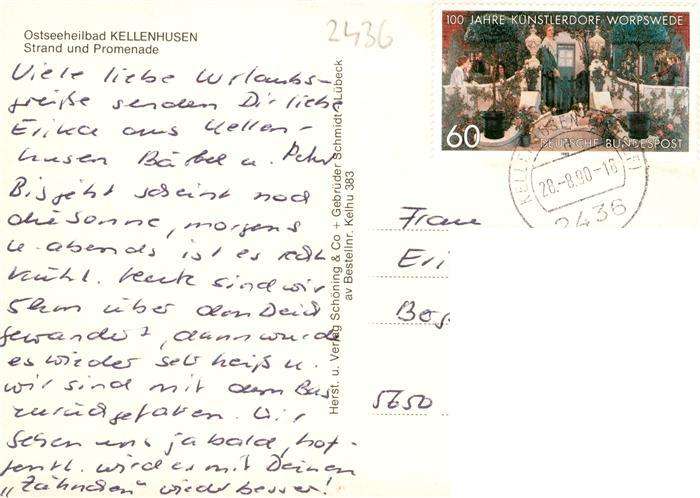 Ostseeheilbad KELLENHUSEN
Strand und Promenade
2436
Viele liebe Urlaubs-
grüße senden Dir liebe
Erika aus Kellen-
husen Bärbel u. Peter
Bis jetzt scheint noch
die Sonne, morgens
u. abends ist es recht
kühl. Heute sind wir
5km über den Deich
gewandert, dann wurde
es wieder sehr heiß u.
wir sind mit dem Bus
zurückgefahren. Wir
sehen uns ja bald, hof-
fentl. wird es mit Deinen
„Zähnchen" wieder besser!
Herst. u. Verlag Schöning & Co + Gebrüder Schmidt - Lübeck
av Bestellnr. Kelhu 383
100 JAHRE KÜNSTLERDORF WORPSWEDE
60 DEUTSCHE BUNDESPOST
28.-8.90-16
2436
Frau
Eri
5650